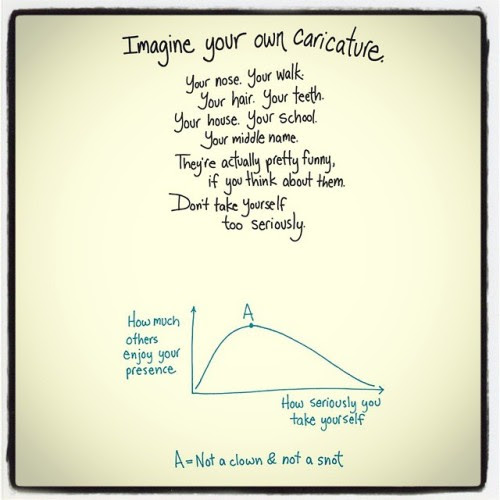 Imagine your own caricature.
Your nose. Your walk.
Your hair. Your teeth.
Your house. Your school.
Your middle name.
They're actually pretty funny,
if you think about them.
Don't take yourself
too seriously.
A
How much
others
enjoy your
presence
How seriously you
take yourself
A=Not a clown & not a snot